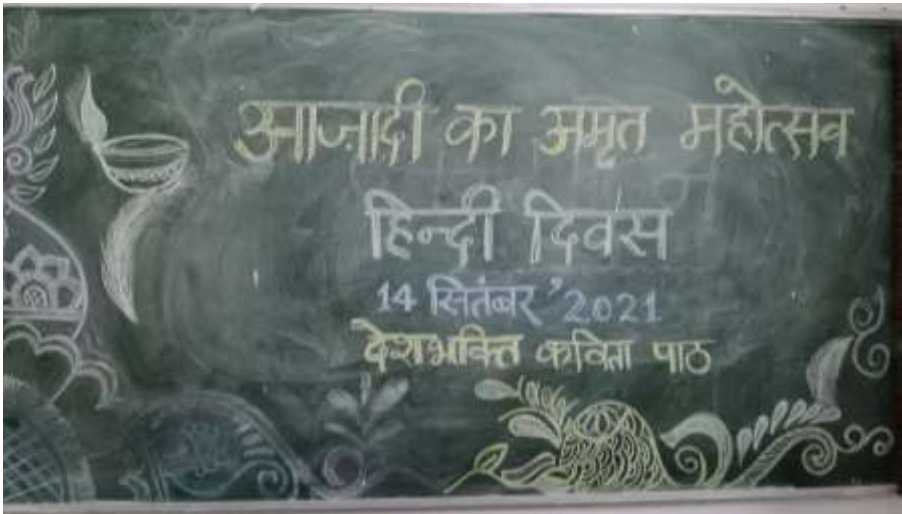 आज़ादी का अमृत महोत्सव
हिन्दी दिवस
14 सितंबर ’2021
देशभक्ति कविता पाठ